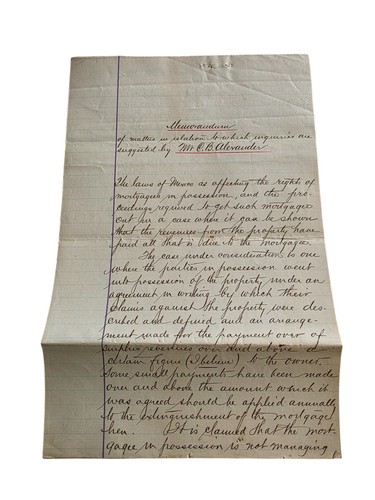 Memorandum
of matters in relation to which inquiries are
suggested by Mr C. B. Alexander
The laws of Mexico as affecting the rights of
mortgagees in possession, and the pro-
ceedings required to get such mortgagee
out in a case when it can be shown
that the revenues from the property have
paid all that is due to the mortgagee.
The case under consideration is one
when the parties in possession went
into possession of the property under an
agreement in writing by which their
claims against the property were des-
cribed and defined and an arrange-
ment made for the payment over of
surplus revenues over and above a
certain figure (I believe) to the owner.
Some small payments have been made
over and above the amount which it
was agreed should be applied annually
to the extinguishment of the mortgage
lien. It is claimed that the mort-
gagee in possession is not managing